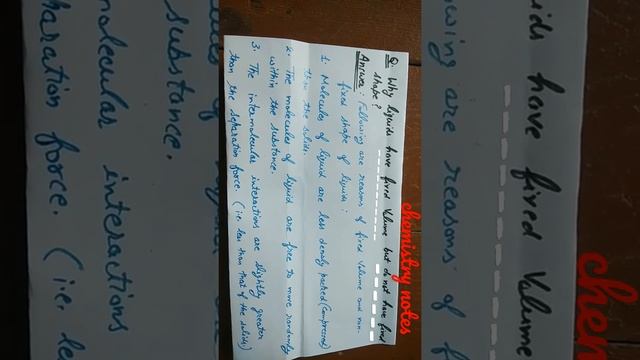 chemistry notes
Q. Why liquids have fixed volume but do not have fixed
shape?
Answer: Following are reasons of fixed volume and non-
fixed shape of liquids:
1. Molecules of liquid are less densly packed (compressed)
than the solids.
2. The molecules of liquid are free to move randomly
within the substance.
3. The intermolecular interactions are slightly greater
than the separation force. (i.e. less than that of the solids)